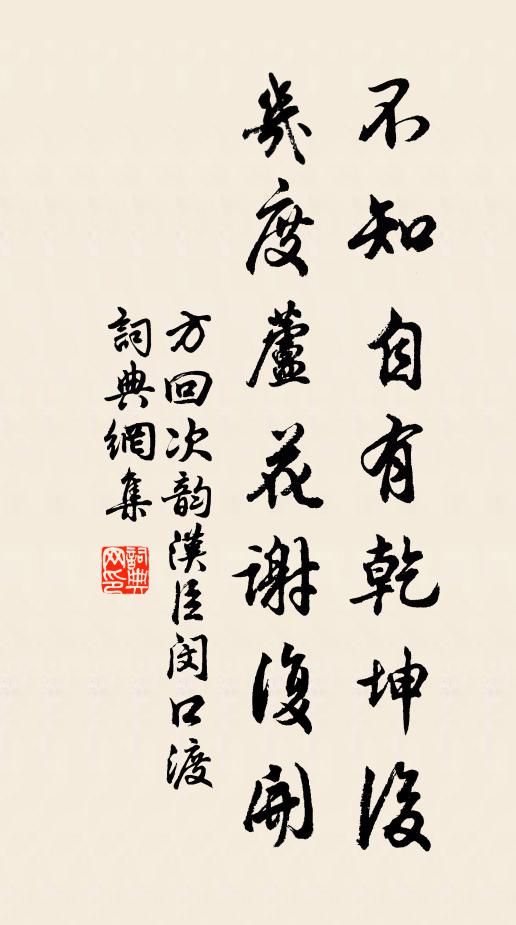 不知自有乾坤後
幾度蘆花謝復開
方回次韵漢臣閔口渡
詞典網集
詞典网印